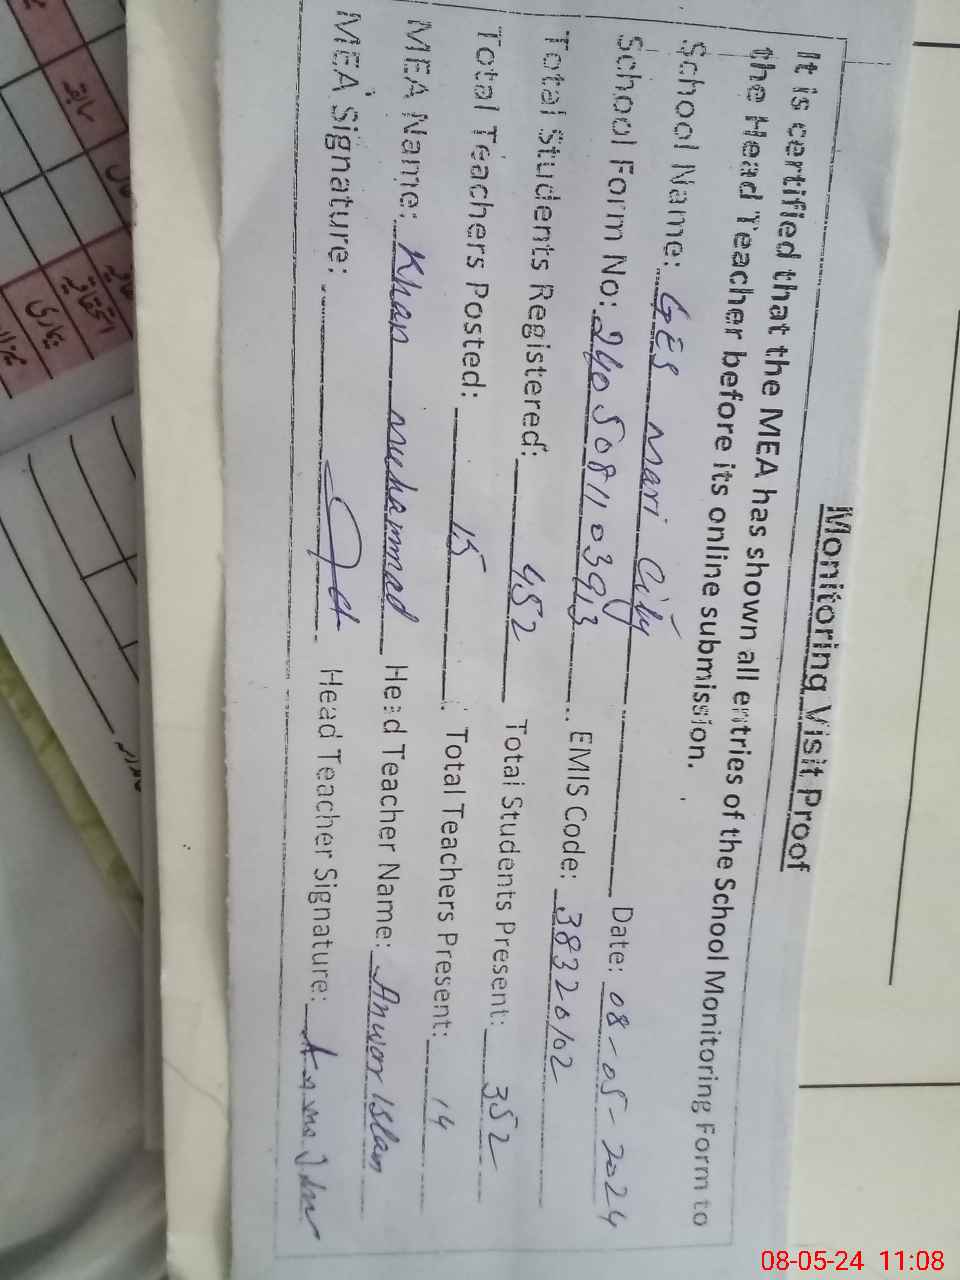 Monitoring Visit Proof
It is certified that the MEA has shown all entries of the School Monitoring Form to
the Head Teacher before its online submission.
School Name: GES Mari City Date: 08-05-2024
School Form No: 2405081103913 EMIS Code: 38320102
Total Students Registered: 452 Total Students Present: 352
Total Teachers Posted: 15 Total Teachers Present: 14
MEA Name: Khan muhammad Head Teacher Name: Anwar Islam
MEA Signature: Head Teacher Signature:
سابقہ
08-05-24 11:08